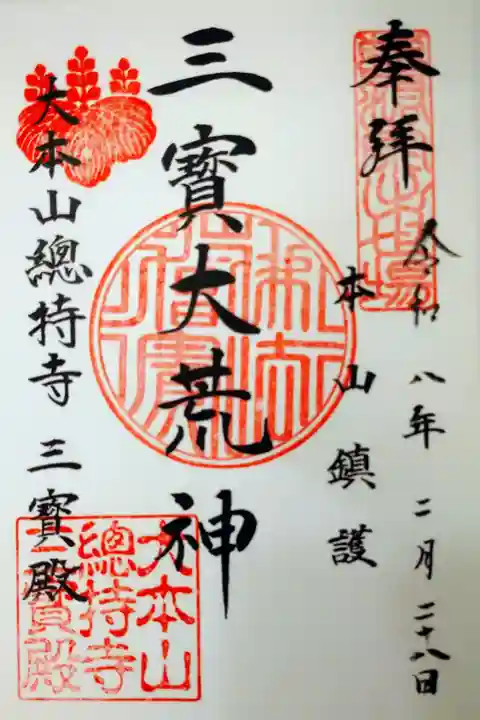 奉拜
令和八年二月二十八日
本山鎮護
三寶大荒神
佛法僧寶
大本山總持寺三寶殿
大本山
總持寺
三寶殿